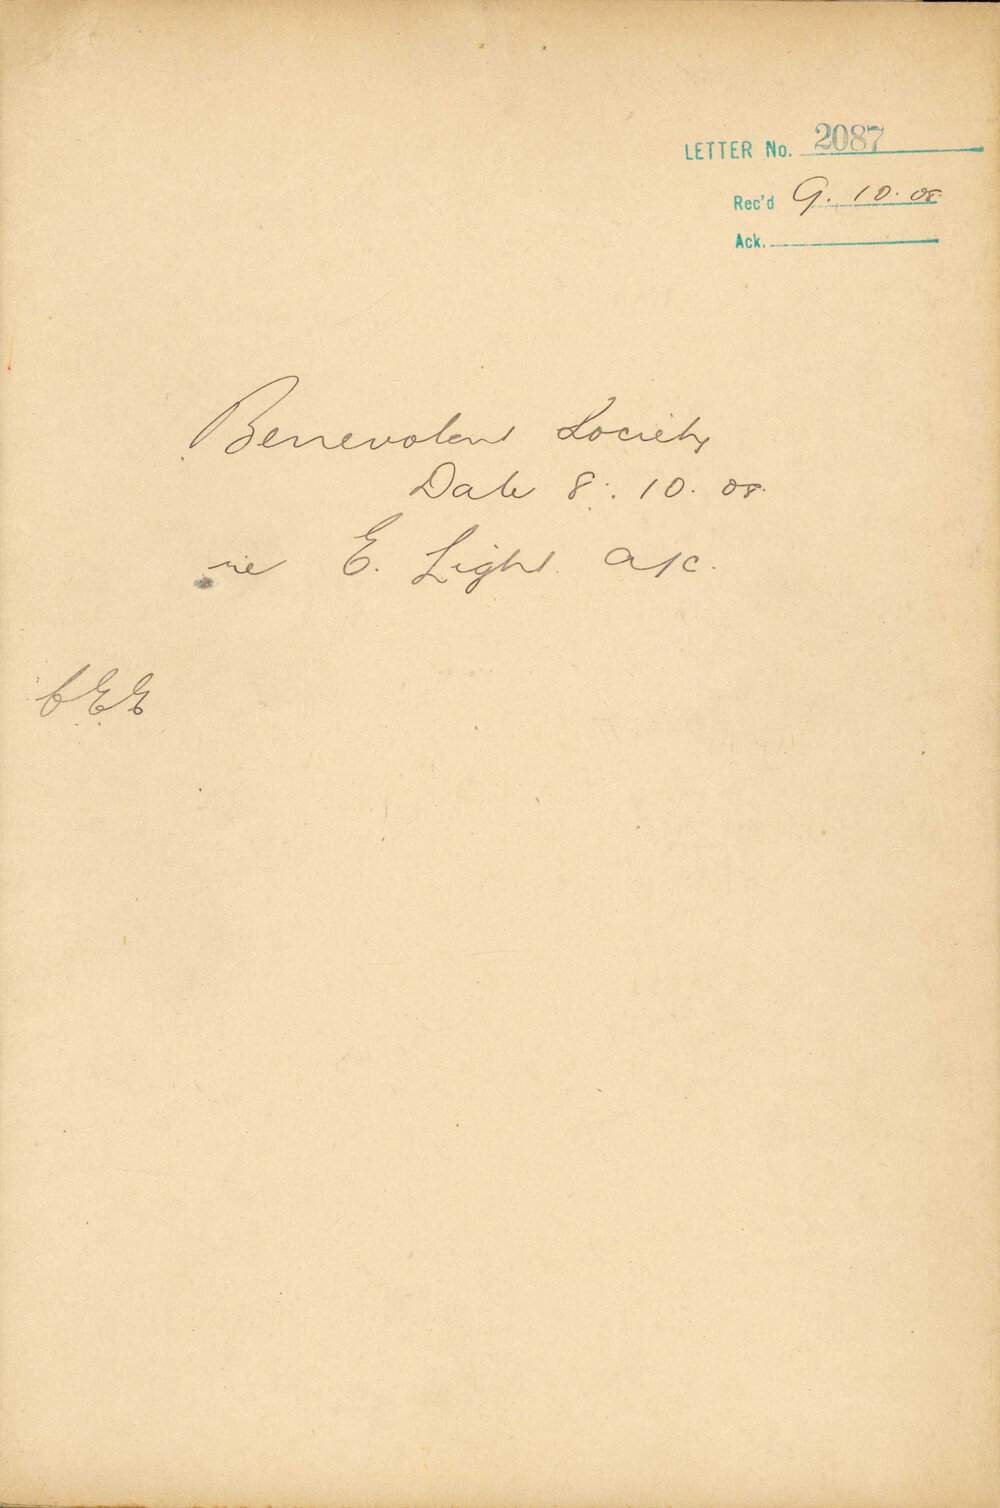 LETTER No. 2087
Rec'd 9. 10. 08
Ack.
Benevolent Society
Date 8. 10. 08.
re E. Light a/c.
CEE